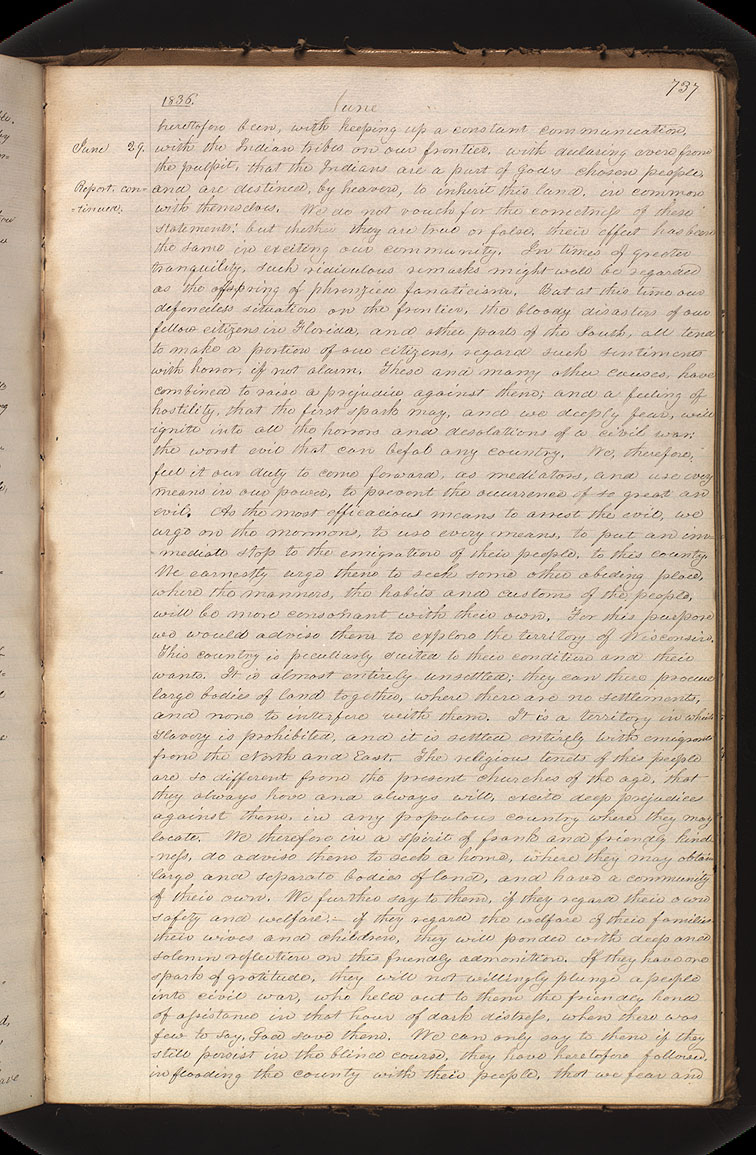 737
1836.
June
heretofore been, with keeping up a constant communication,
June 29.
with the Indian tribes on our frontier, with declaring even from
the pulpit, that the Indians are a part of God's chosen people,
Report. con-
and are destined, by heaven, to inherit this land, in common
-tinued.
with themselves. We do not vouch for the correctness of these
statements; but whether they are true or false, their effect has been
the same in exciting our community. In times of greater
tranquility, such ridiculous remarks might well be regarded
as the offspring of phrenzied fanaticism. But at this time our
defenceless situation on the frontier, the bloody disasters of our
fellow citizens in Florida, and other parts of the South, all tend
to make a portion of our citizens, regard such sentiments
with horror, if not alarm. These and many other causes, have
combined to raise a prejudice against them; and a feeling of
hostility, that the first spark may, and we deeply fear, will
ignite into all the horrors and desolations of a civil war;
the worst evil that can befal any country. We, therefore,
feel it our duty to come forward, as mediators, and use every
means in our power, to prevent the occurrence of so great an
evil. As the most efficacious means to arrest the evil, we
urge on the mormons, to use every means, to put an im-
-mediate stop to the emigration of their people, to this county.
We earnestly urge them to seek some other abiding place,
where the manners, the habits and customs of the people,
will be more consonant with their own. For this purpose
we would advise them to explore the territory of Wisconsin.
This country is peculiarly suited to their condition and their
wants. It is almost entirely unsettled; they can there procure
large bodies of land together, where there are no settlements,
and none to interfere with them. It is a territory in which
slavery is prohibited, and it is settled entirely with emigrants
from the North and East. The religious tenets of this people
are so different from the present churches of the age, that
they always have and always will, excite deep prejudices
against them, in any populous country where they may
locate. We therefore in a spirit of frank and friendly kind-
-ness, do advise them to seek a home, where they may obtain
large and separate bodies of land, and have a community
of their own. We further say to them, if they regard their own
safety and welfare:— if they regard the welfare of their families
their wives and children, they will ponder with deep and
solemn reflection on this friendly admonition. If they have one
spark of gratitude, they will not willingly plunge a people
into civil war, who held out to them the friendly hand
of assistance in that hour of dark distress, when there was
few to say, God save them. We can only say to them if they
still persist in the blind course, they have heretofore followed,
in flooding the county with their people, that we fear and